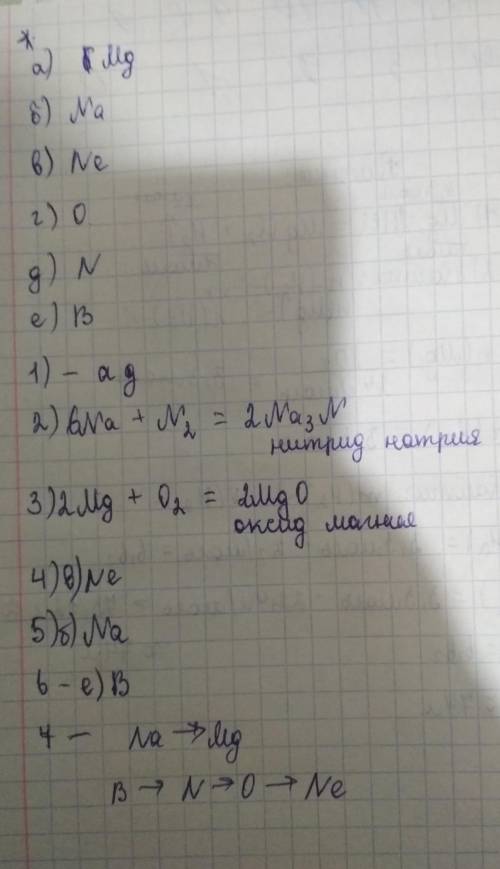 *
а) Mg
б) Na
в) Ne
г) O
д) N
е) B
1) - а д
2) 6Na + N₂ = 2Na₃N
нитрид натрия
3) 2Mg + O₂ = 2MgO
оксид магния
4) в) Ne
5) б) Na
6 - е) B
7 - Na → Mg
B → N → O → Ne